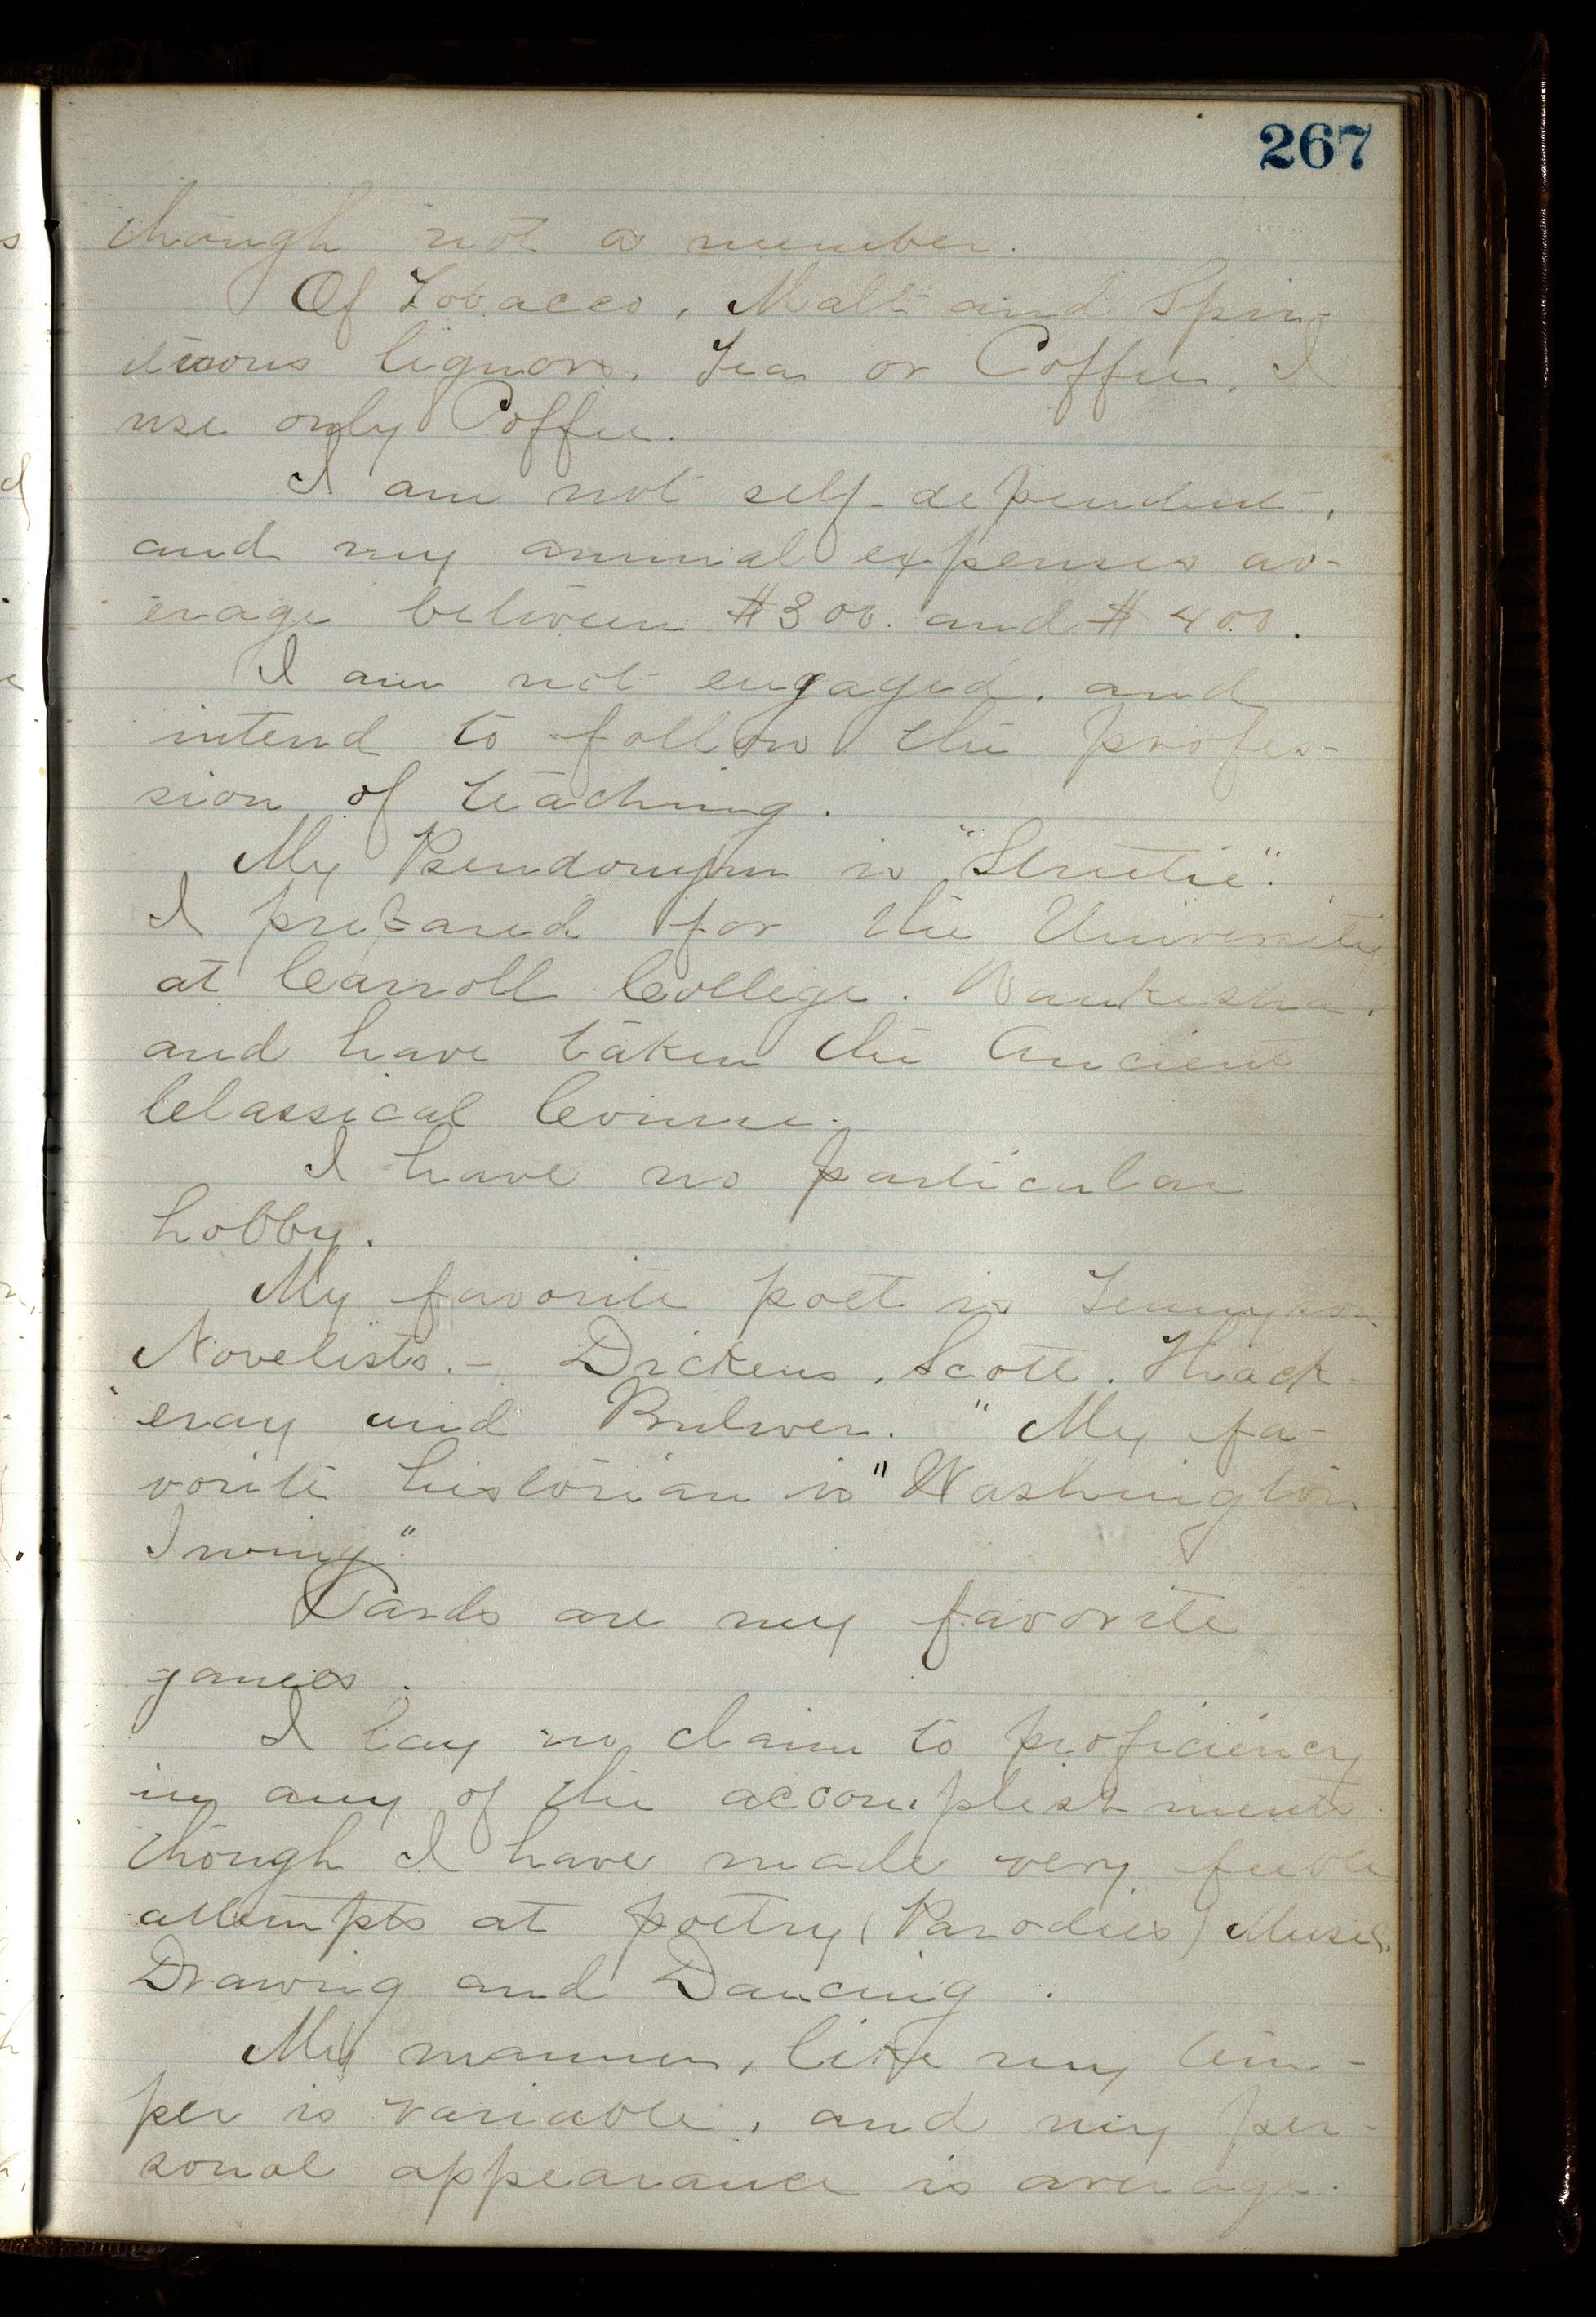 267
though not a member.
Of Tobacco, Malt and Spir-
ituous liquors, Tea or Coffee, I
use only Coffee.
I am not self-dependent,
and my annual expenses av-
erage between $300. and $400.
I am not engaged, and
intend to follow the profes-
sion of teaching.
My Pseudonym is "Streetie".
I prepared for the University
at Carroll College. Waukesha,
and have taken the Ancient
Classical Course.
I have no particular
hobby.
My favorite poet is Tennyson
Novelists.- Dickens, Scott. Thack-
eray and Bulwer. " My fa-
vorite historian is "Washington
Irving".
Cards are my favorite
games.
I lay no claim to proficiency
in any of the accomplishments
though I have made very feeble
attempts at poetry (Parodies) Music.
Drawing and Dancing.
My manner, like my tem-
per is variable, and my per-
sonal appearance is average.